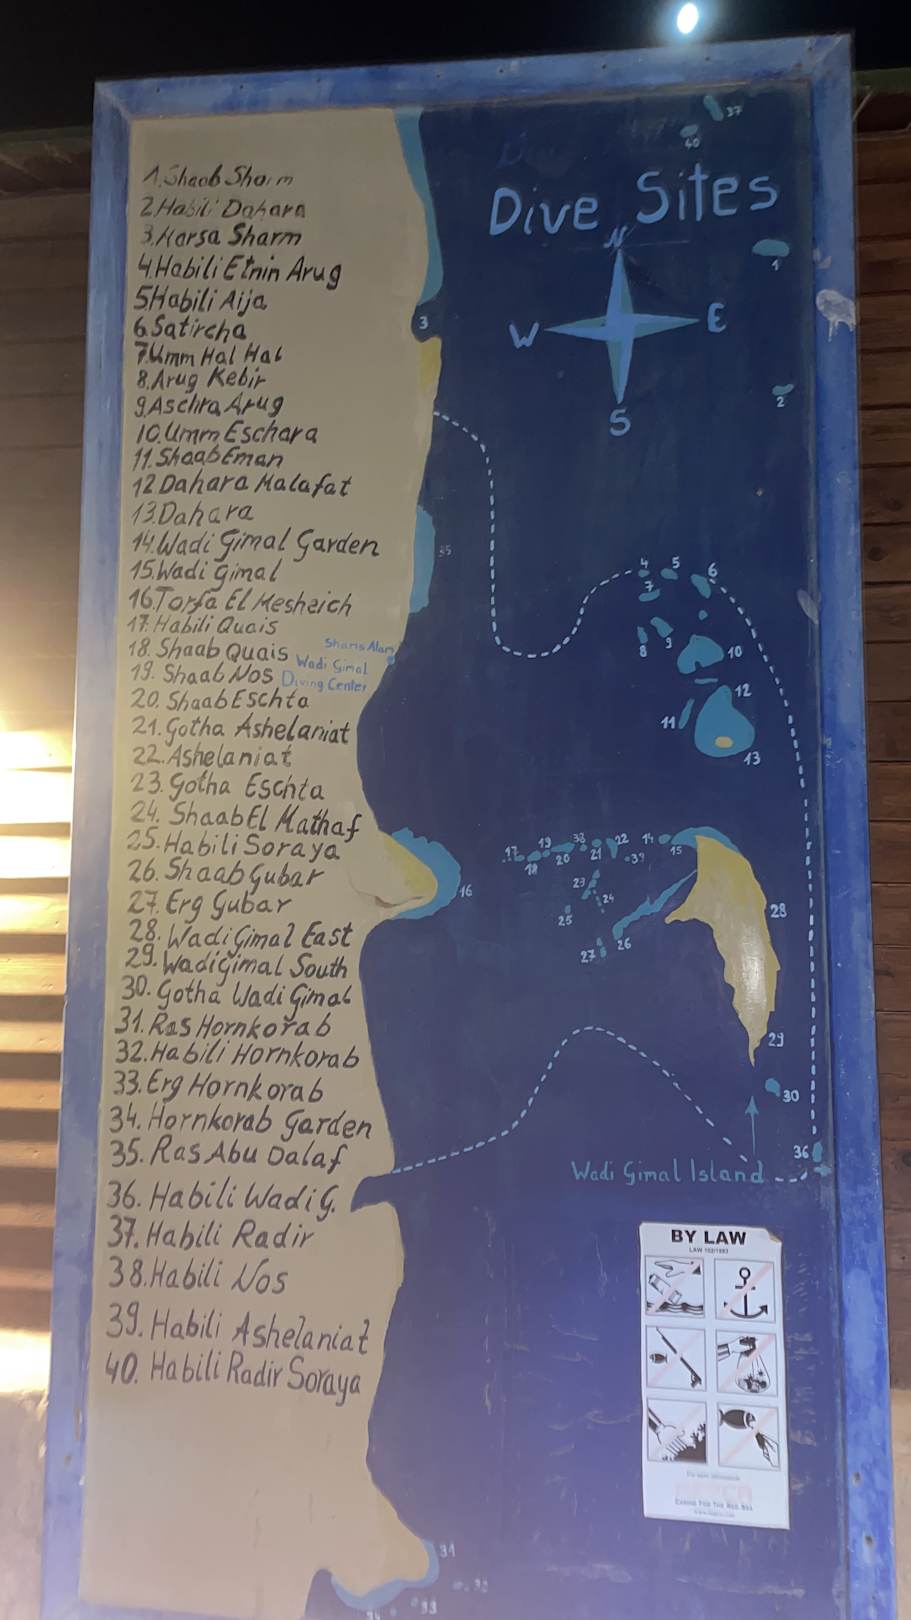 Dive Sites
N
W
E
S
1.Shaab Sharm
2.Habili Dahara
3.Marsa Sharm
4.Habili Etnin Arug
5.Habili Aija
6.Satircha
7.Umm Hal Hal
8.Arug Kebir
9.Aschra Arug
10.Umm Eschara
11.Shaab Eman
12 Dahara Malafat
13.Dahara
14.Wadi Gimal Garden
15.Wadi gimal
16.Torfa El Mesheich
17.Habili Quais
18. Shaab Quais
19. Shaab Nos
20. Shaab Eschta
21. Gotha Ashelaniat
22. Ashelaniat
23. Gotha Eschta
24. Shaab El Mathaf
25. Habili Soraya
26. Shaab Gubar
27. Erg Gubar
28. Wadi Gimal East
29. Wadi gimal South
30. Gotha Wadi Gimal
31. Ras Hornkorab
32. Habili Hornkorab
33. Erg Hornkorab
34. Hornkorab Garden
35. Ras Abu Dalaf
36. Habili Wadi G.
37. Habili Radir
38. Habili Nos
39. Habili Ashelaniat
40. Habili Radir Soraya
Shams Alam
Wadi Gimal
Diving Center
37
40
1
3
2
35
4
5
6
7
8
9
10
12
11
13
17
19
38
22
14
18
20
21
39
15
16
23
24
25
28
26
27
29
30
36
Wadi Gimal Island
BY LAW
31
33